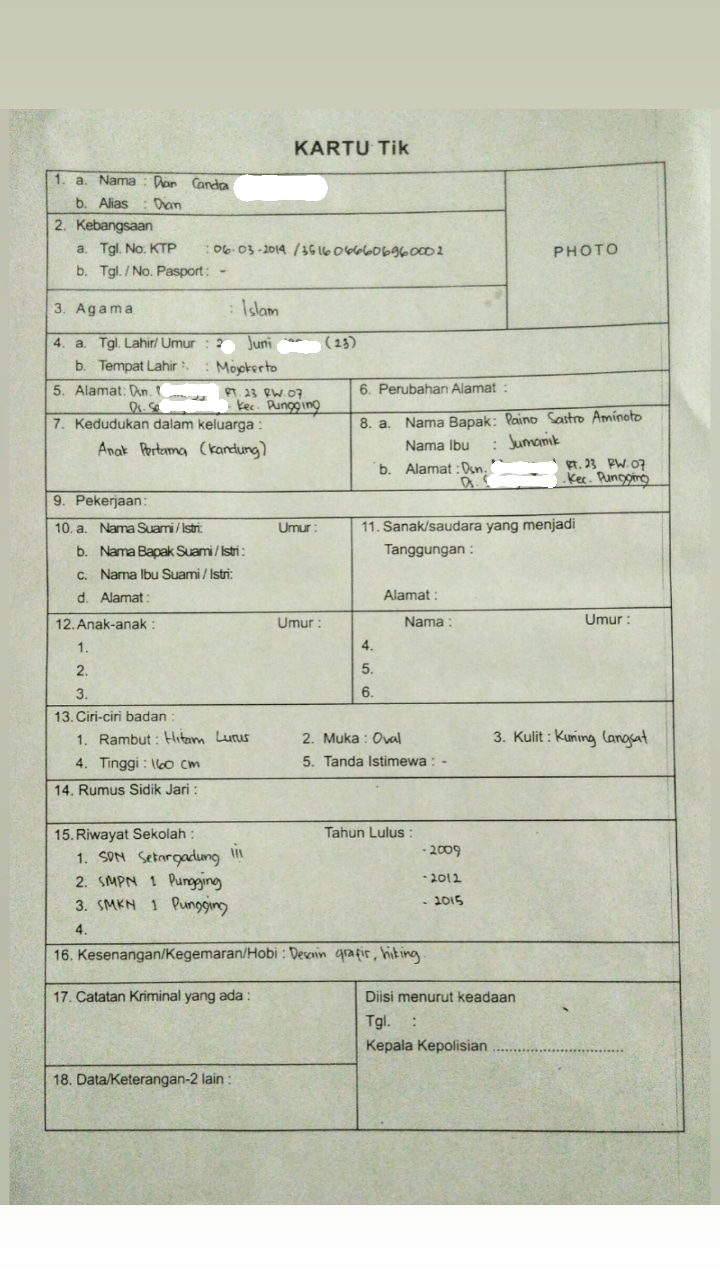 KARTU Tik
1. a. Nama : Dian Canda
b. Alias : Dian
2. Kebangsaan
a. Tgl. No. KTP : 06-03-2014 / 3516066606960002
b. Tgl. / No. Pasport : -
PHOTO
3. Agama : Islam
4. a. Tgl. Lahir/ Umur : 2 Juni (23)
b. Tempat Lahir : Mojokerto
5. Alamat : Dsn. RT. 23 RW. 07
Ds. Se . Kec. Pungging
6. Perubahan Alamat :
7. Kedudukan dalam keluarga :
Anak Pertama (Kandung)
8. a. Nama Bapak : Paino Sastro Aminoto
Nama Ibu : Jumanik
b. Alamat : Dsn. RT. 23 RW. 07
Ds. S . Kec. Pungging
9. Pekerjaan :
10. a. Nama Suami / Istri: Umur :
b. Nama Bapak Suami / Istri :
c. Nama Ibu Suami / Istri:
d. Alamat :
11. Sanak/saudara yang menjadi
Tanggungan :
Alamat :
12. Anak-anak : Umur : Nama : Umur :
1. 4.
2. 5.
3. 6.
13. Ciri-ciri badan :
1. Rambut : Hitam Lurus 2. Muka : Oval 3. Kulit : Kuning langsat
4. Tinggi : 160 cm 5. Tanda Istimewa : -
14. Rumus Sidik Jari :
15. Riwayat Sekolah : Tahun Lulus :
1. SDN Sekargadung III - 2009
2. SMPN 1 Pungging - 2012
3. SMKN 1 Pungging - 2015
4.
16. Kesenangan/Kegemaran/Hobi : Desain grafis, hiking
17. Catatan Kriminal yang ada :
Diisi menurut keadaan
Tgl. :
Kepala Kepolisian ..............................
18. Data/Keterangan-2 lain :